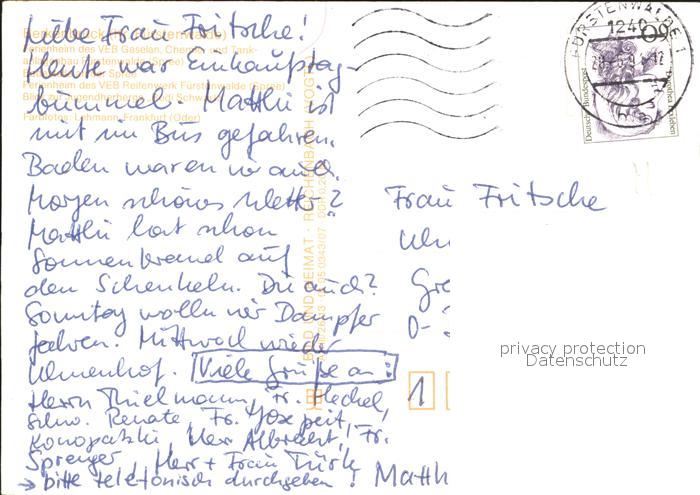 Liebe Frau Fritsche!
Heute war Einkauftag-
bummel. Matthi ist
mit im Bus gefahren.
Baden waren wir auch.
Morgen schönes Wetter?
Matthi hat schon
Sonnenbrand auf
den Schenkeln. Du auch?
Sonntag wolln wir Dampfer
fahren. Mittwoch wieder
Ulmenhof. Viele Grüße an:
Herrn Thielmann, Fr. Heckel,
Schw. Renate, Fr.
Konopatzki, Herr Albrecht, Fr.
Sprenger, Herr + Frau Türk
→ bitte telefonisch durchgeben! Matth
Ferienheim des VEB Gaselan, Chemie- und Tank-
Ferienheim des VEB Reifenwerk Fürstenwalde (Spree)
Farbfotos: Lehmann, Frankfurt (Oder)
BILD UND HEIMAT · REICHENBACH (VOGTL
FÜRSTENWALDE 1
1240
Deutsche Bundespost
Frau Fritsche
Gre
O-
1
privacy protection
Datenschutz